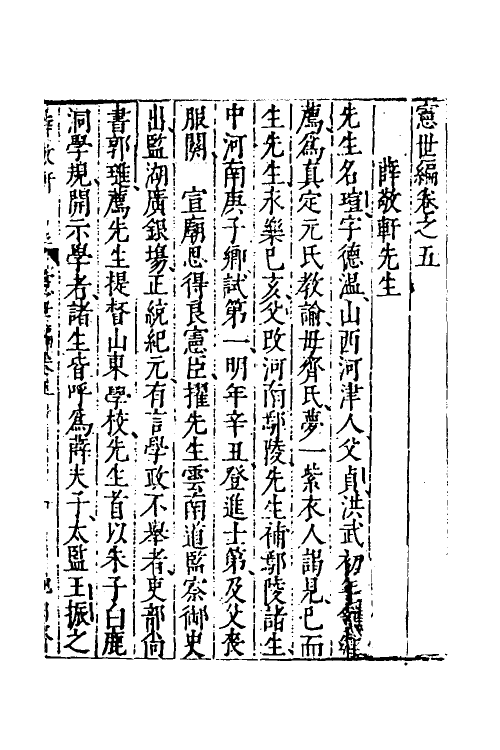 憲世編卷之五
薛敬軒先生
先生名瑄字德溫山西河津人父貞洪武初年
薦爲真定元氏教諭毋齊氏夢一紫衣人謁見巳而
生先生永樂巳亥父改河南鄢陵先生補鄢陵諸生
中河南庚子鄉試第一明年辛丑登進士第及父喪
服闋 宣廟思得良憲臣擢先生雲南道監察御史
出監湖廣銀場正統紀元有言學政不舉者吏部尚
書郭璡薦先生提督山東學校先生首以朱子白鹿
洞學規開示學者諸生皆呼爲薛夫子太監王振之
薛敬軒 憲世編卷五